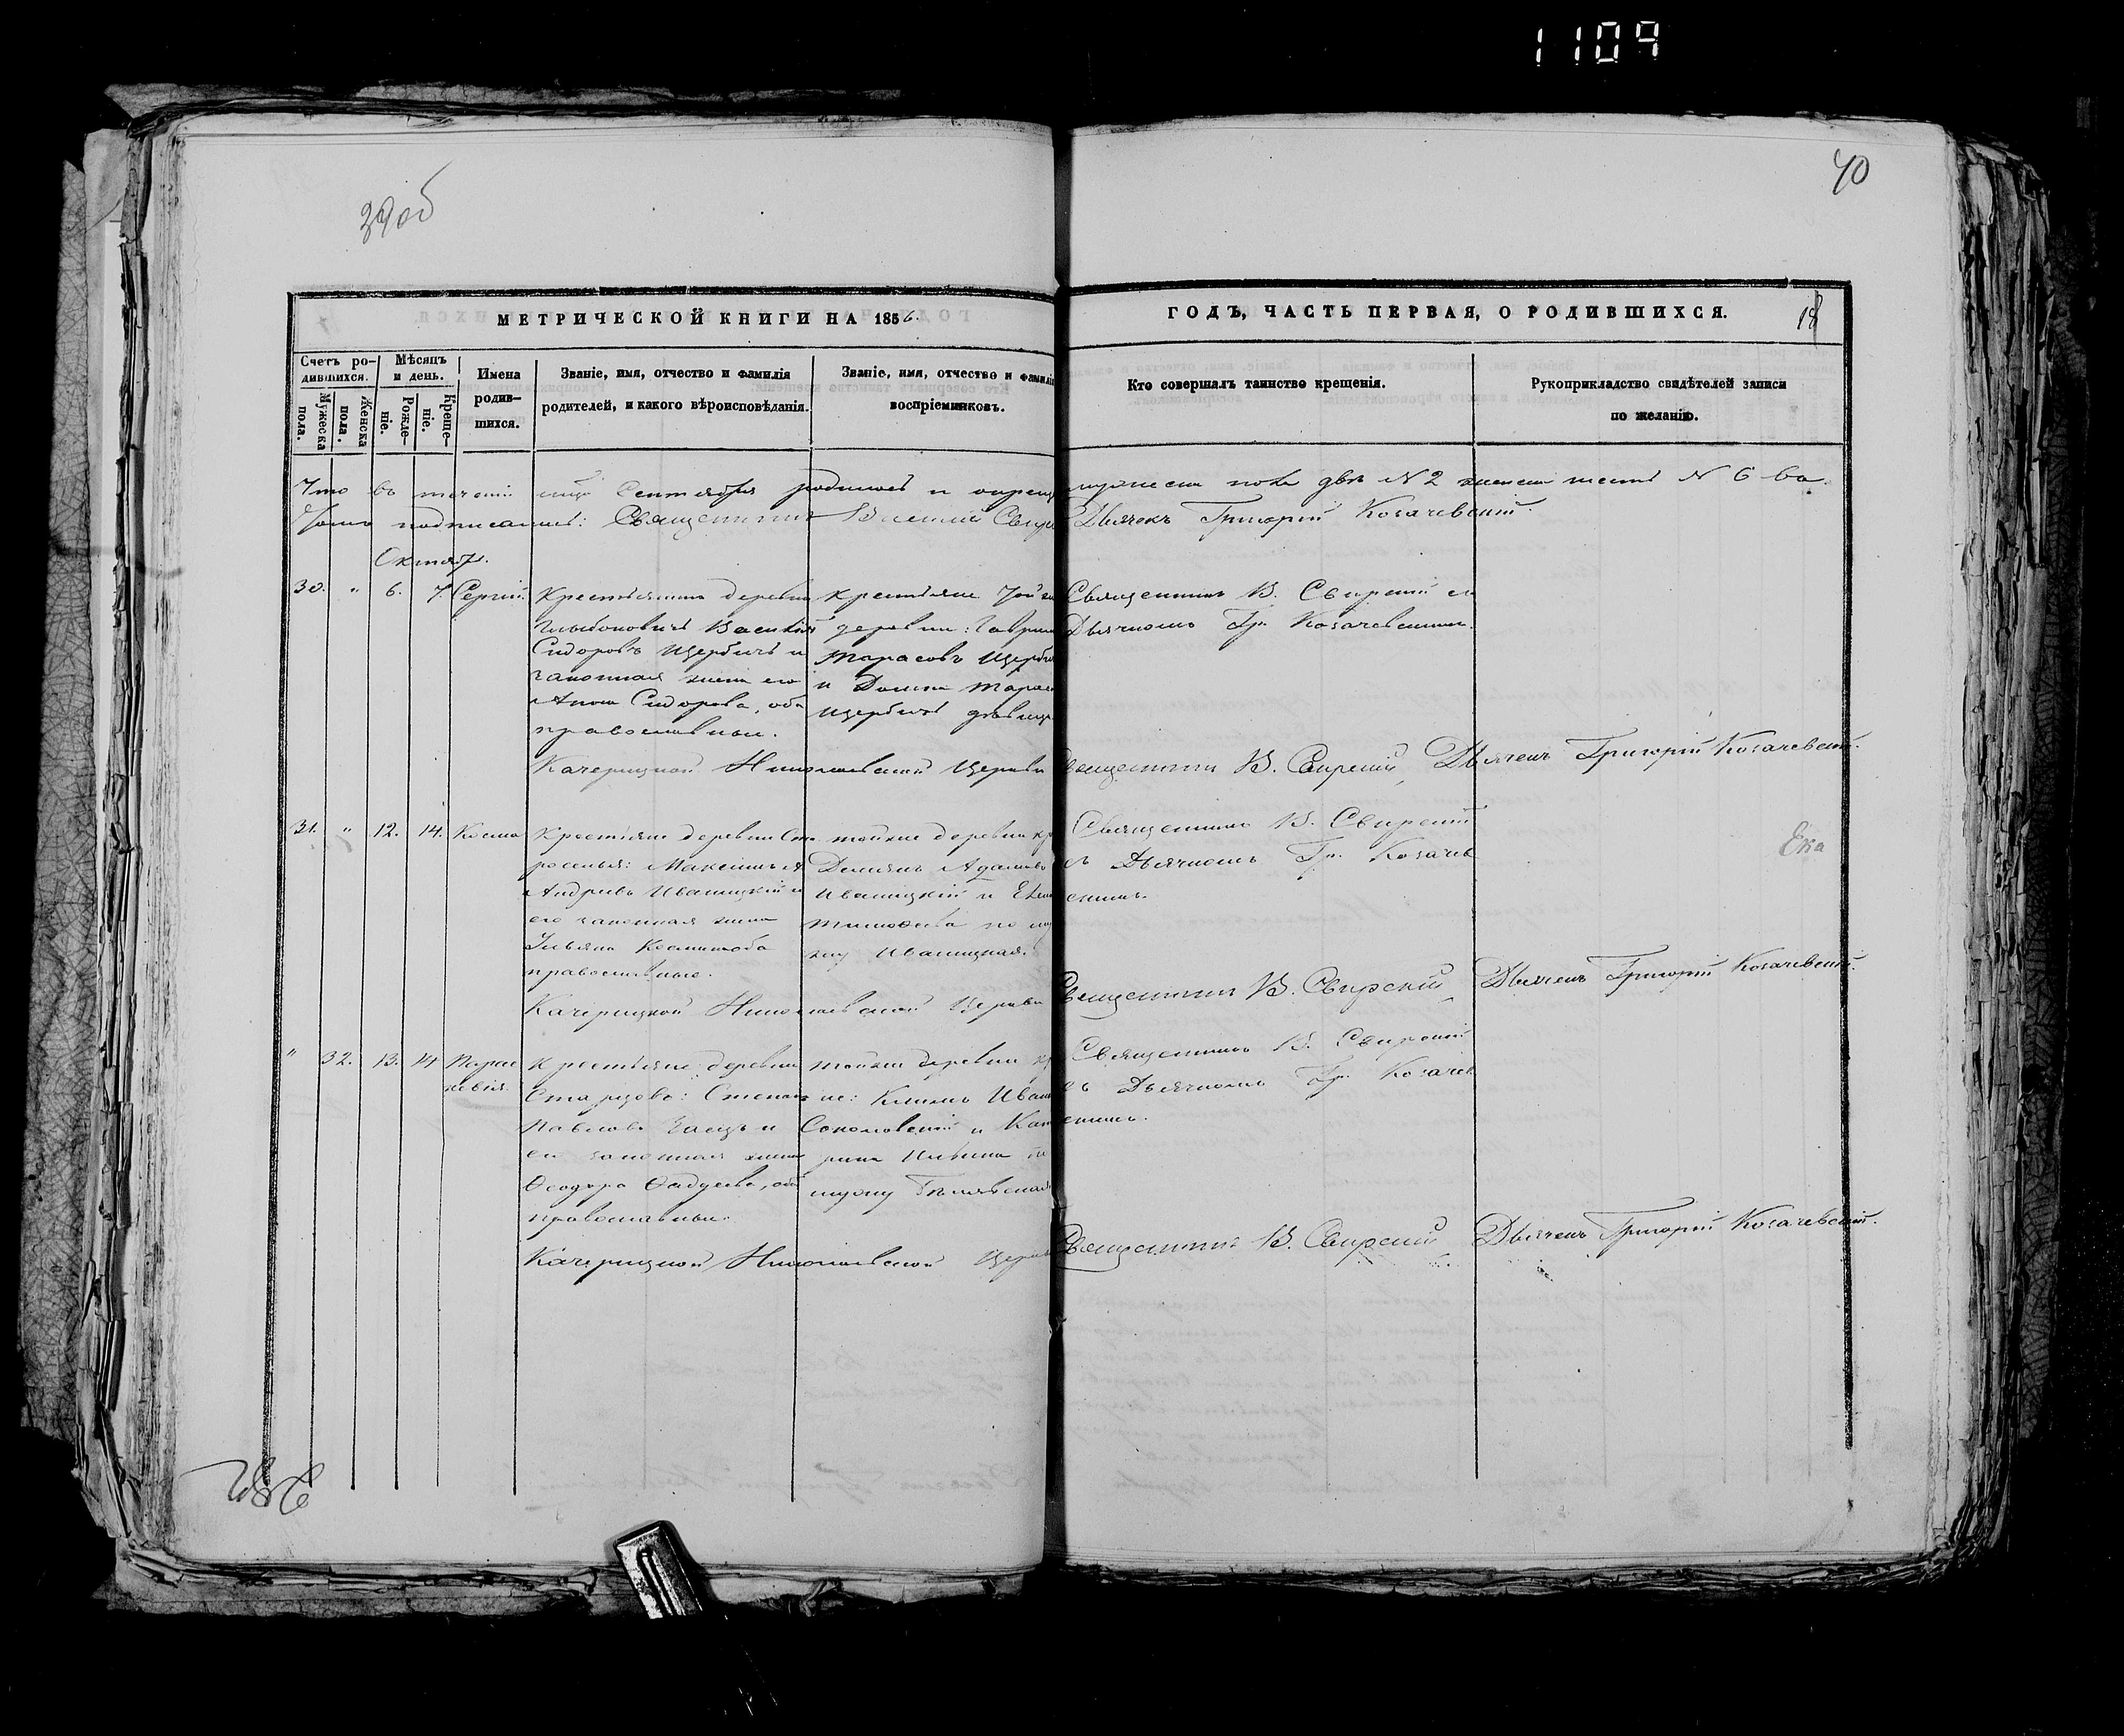 1109
39об
40
МЕТРИЧЕСКОЙ КНИГИ НА 1856.
ГОДЪ, ЧАСТЬ ПЕРВАЯ, О РОДИВШИХСЯ.
18
Счетъ ро-
дившихся.
Мужеска
пола.
Женска
пола.
Мѣсяцъ
и день.
Рожде-
ніе.
Креще-
ніе.
Имена
родив-
шихся.
Званіе, имя, отчество и фамилія
родителей, и какого вѣроисповѣданія.
Званіе, имя, отчество и фамилія
воспріемниковъ.
Кто совершалъ таинство крещенія.
Рукоприкладство свидѣтелей записи
по желанію.
Что въ теченіи Сентября родилось и окрещ мужеска пола два N 2 женска шесть N 6 во
подписались: Священникъ Василій Свир Дьячокъ Григорій Козачевскій.
Октябр.
30. " 6. 7. Сергій.
Крестьянинъ деревни
Василій
Сидоровъ Щербичъ и
законная жена его
Анна Сидорова, оба
православные.
крестьяне той же
деревни: Гаврі
Тарасовъ Щерби
и Тарас
Щербичъ дѣвица
Священникъ В. Свирскій съ
Дьячкомъ Гр. Козачевскимъ.
Качерицкой Николаевской Церкви Священникъ В. Свирскій, Дьячекъ Григорій Козачевскій.
31. " 12. 14. Косма
Крестьяне деревни Ста
роселья: Максимъ
Андреевъ Иваницкій и
его законная жена
Ульяна Космикова
православные.
тойже деревни кр
Демьянъ Адамовъ
Иваницкій и
Тимоѳеева по му
жу Иваницкая.
Священникъ В. Свирскій
съ Дьячкомъ Гр. Козачев
скимъ.
Ека
Качерицкой Николаевской Церкви Священникъ В. Свирскій, Дьячекъ Григорій Козачевскій.
" 32. 13. 14 Парас
кевія.
Крестьяне деревни
Степанъ
Павловъ Заецъ и
его законная жена
Ѳеодора Ѳадѣева, оба
православные.
тойже деревни кр
не: Климъ Иван
Соколовскій и Кате
рина Ильина по
мужу
Священникъ В. Свирскій
съ Дьячкомъ Гр. Козачев
скимъ.
Качерицкой Николаевской Церкви Священникъ В. Свирскій Дьячекъ Григорій Козачевскій.